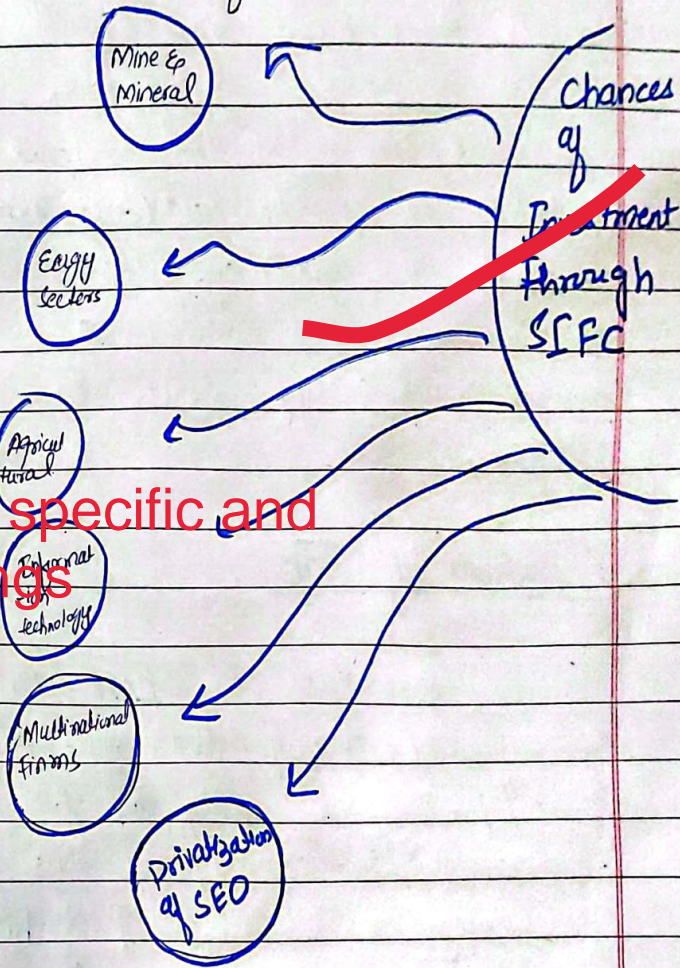 Mine &
Mineral
Chances
of
Investment
through
SIFC
Eergy
Sectors
Agricul
tural
specific and
ngs
Informat
tion
technology
Multinational
Firms
Privatization
of SEO